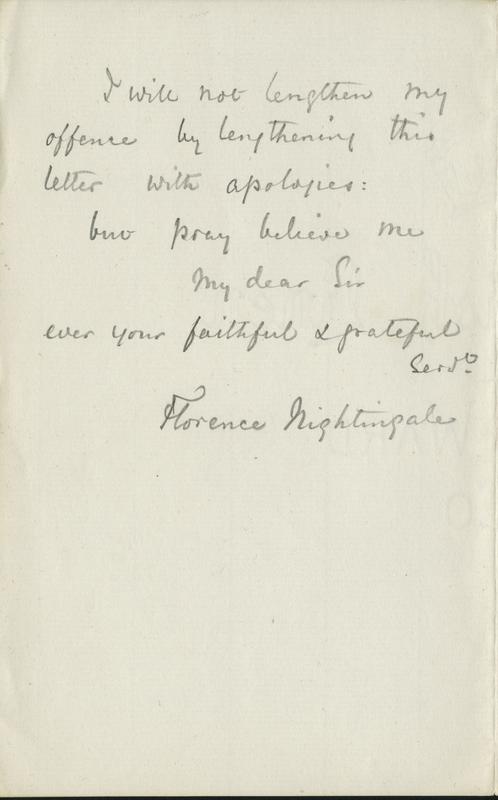 I will not lengthen my
offence by lengthening this
letter with apologies:
but pray believe me
My dear Sir
ever your faithful & grateful
Servt
Florence Nightingale